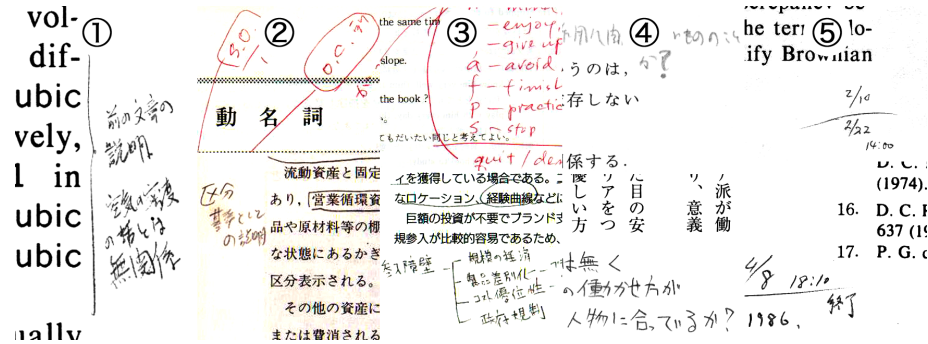 vol-
dif-
ubic
vely,
l in
ubic
ubic
ually
①
前の文章の
説明
空気の密度
の話とは
無関係
②
S.O.
O.C.
動名詞
区分
基準として
の説明
流動資産と固定
あり、営業循環資
品や原材料等の棚
な状態にあるかぎ
区分表示される。
その他の資産に
または費消される
③
the same tim
slope.
the book ?
てもだいたい同じと考えてよい。
enjoy
give up
a - avoid
f - finish
p - practic
s - stop
quit / den
ィを獲得している場合である。
なロケーション、経験曲線などに
巨額の投資が不要でブランド支
規参入が比較的容易であるため、
参入障壁
規模の経済
製品差別化
コスト優位性
政府規制
④
か?
うのは,
存しない
係する.
派が働
り、意義
た目の安
リアをつ
優しい方
は無く
の働かせ方が
人物に合っているか?
⑤
crepancy be
he term lo-
ify Brownian
2/10
2/22
14:00
D. C.
(1974).
16. D. C. F
637 (19
17. P. G. d
4/8 18:10
終了
1986.